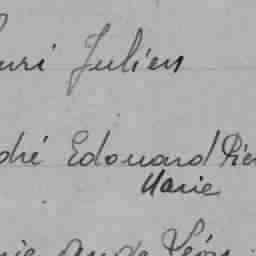 uri Julien
dré Edouard Pier
Marie
nie Ange Léon